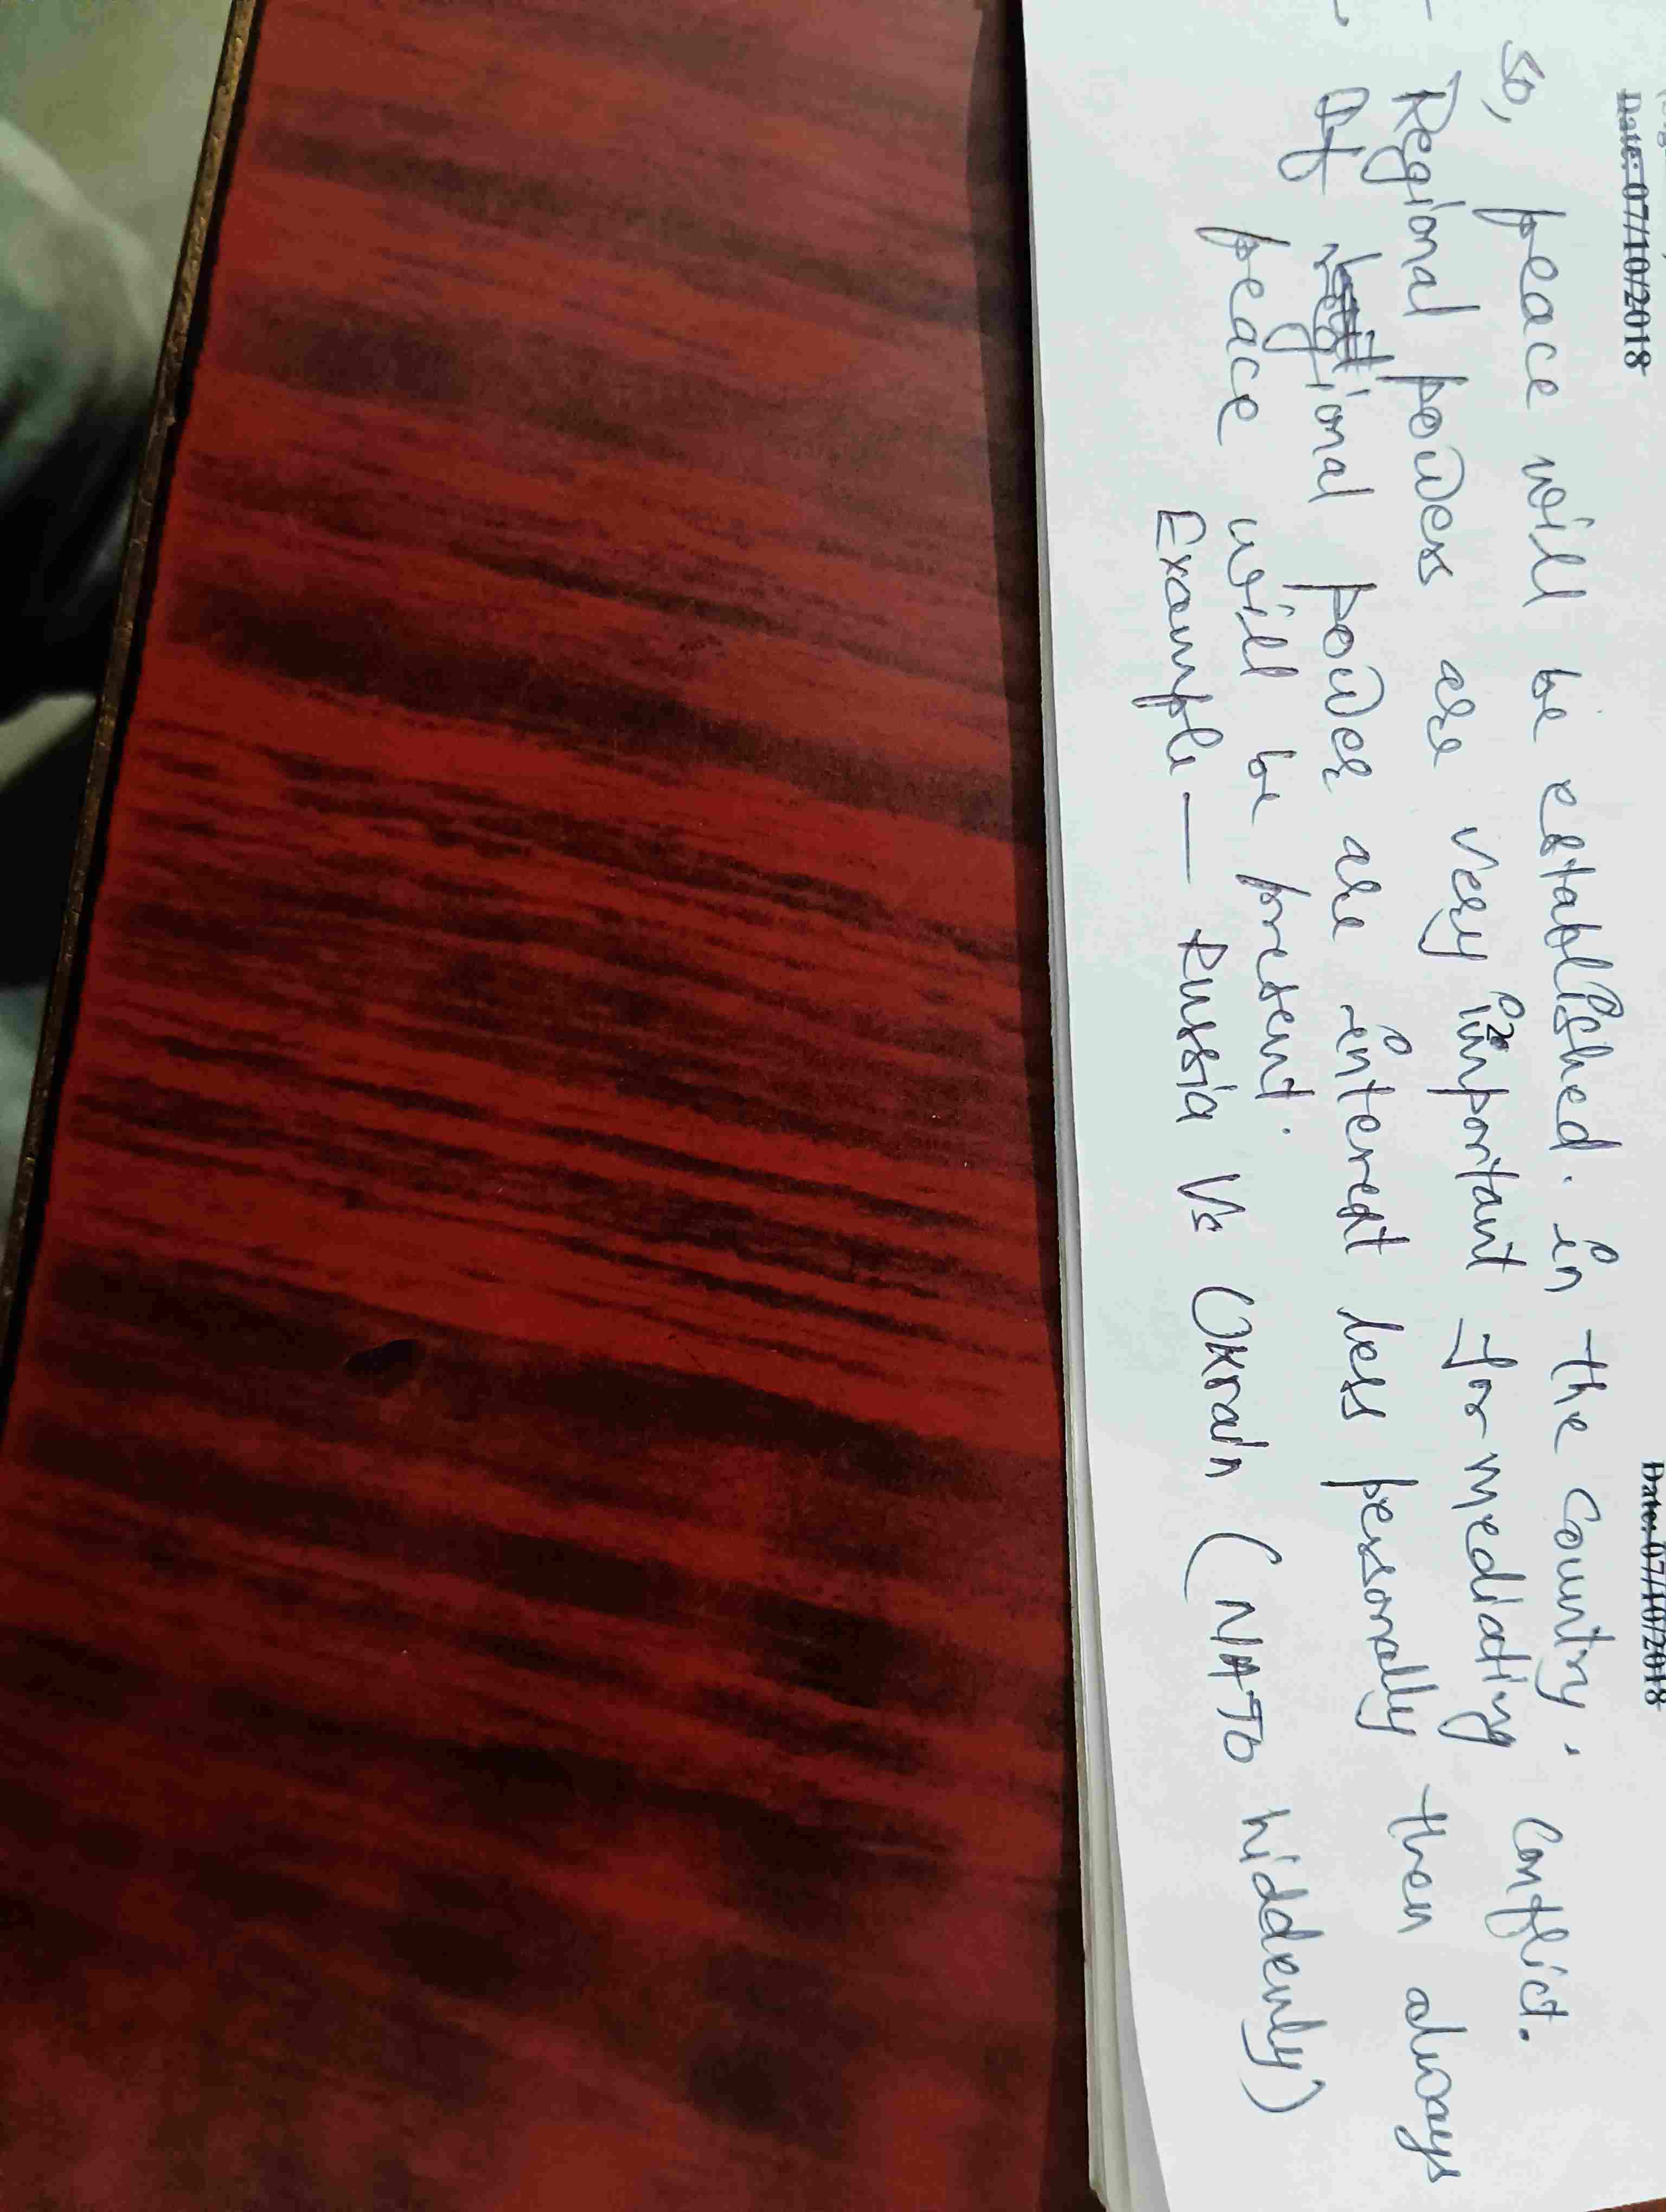 Date: 07/10/2018 Date: 07/10/2018
So, peace will be established. in the country.
- Regional powers are very important for mediating conflict.
- If regional power are interest less personally then always
peace will be present.
Example — Russia Vs Ukrain (NATO hiddenly)